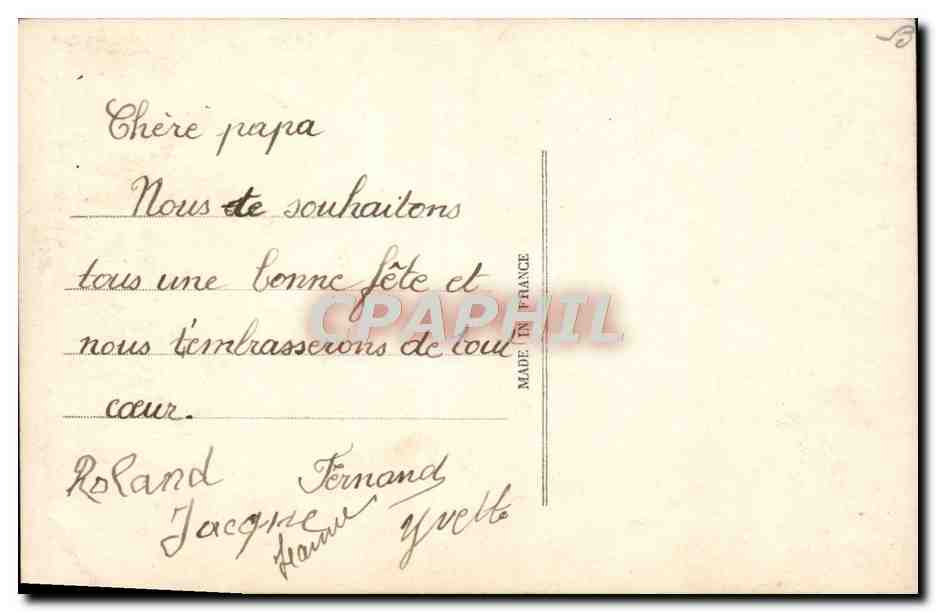 Chère papa
Nous te souhaitons
tous une bonne fête et
nous t'embrasserons de tout
cœur.
Roland Fernand
Jacque Jeanne Yvette
MADE IN FRANCE
CPAPHIL
B